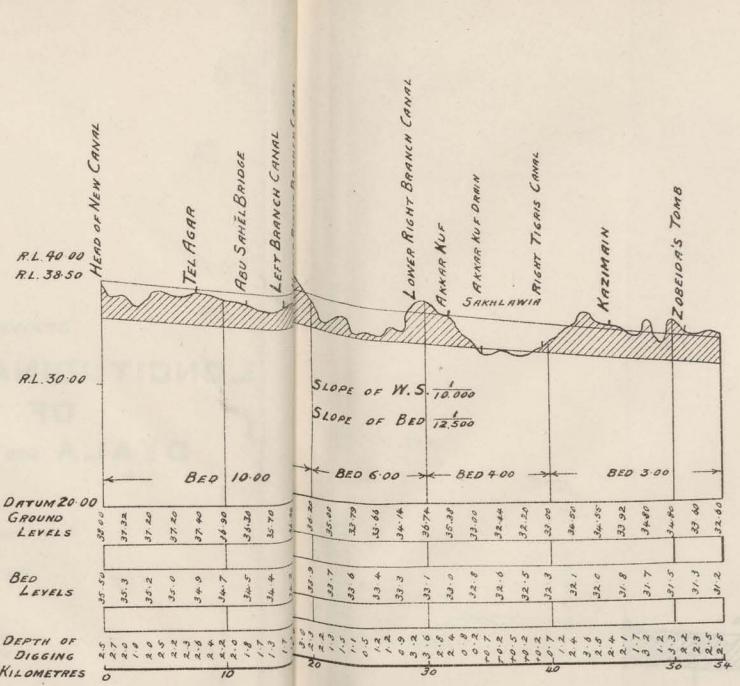 HEAD OF NEW CANAL
TEL AGAR
ABU SAHĒL BRIDGE
LEFT BRANCH CANAL
LOWER RIGHT BRANCH CANAL
AKKAR KUF
AKKAR KUF DRAIN
SAKHLAWIA
RIGHT TIGRIS CANAL
KAZIMAIN
ZOBEIDA'S TOMB
R.L. 40·00
R.L. 38·50
R.L. 30·00
SLOPE OF W.S. 1/10.000
SLOPE OF BED 1/12,500
BED 10·00 BED 6·00 BED 4·00 BED 3·00
DATUM 20·00
GROUND LEVELS 38·00 37·32 37·20 37·20 37·40 36·90 36·30 35·70 36·20 35·00 33·79 33·66 34·14 36·74 35·38 33·00 32·44 32·20 33·00 34·50 34·55 33·92 34·80 34·80 33·60 32·60
BED LEVELS 35·50 35·3 35·2 35·0 34·9 34·7 34·5 34·4 33·9 33·7 33·6 33·4 33·3 33·1 33·0 32·8 32·6 32·5 32·3 32·1 32·0 31·8 31·7 31·5 31·3 31·2
DEPTH OF DIGGING 2·5 2·7 2·0 1·0 2·0 2·5 2·2 2·3 2·6 2·2 2·0 1·8 1·7 1·3 1·7
KILOMETRES 0 10 20 30 40 50 54